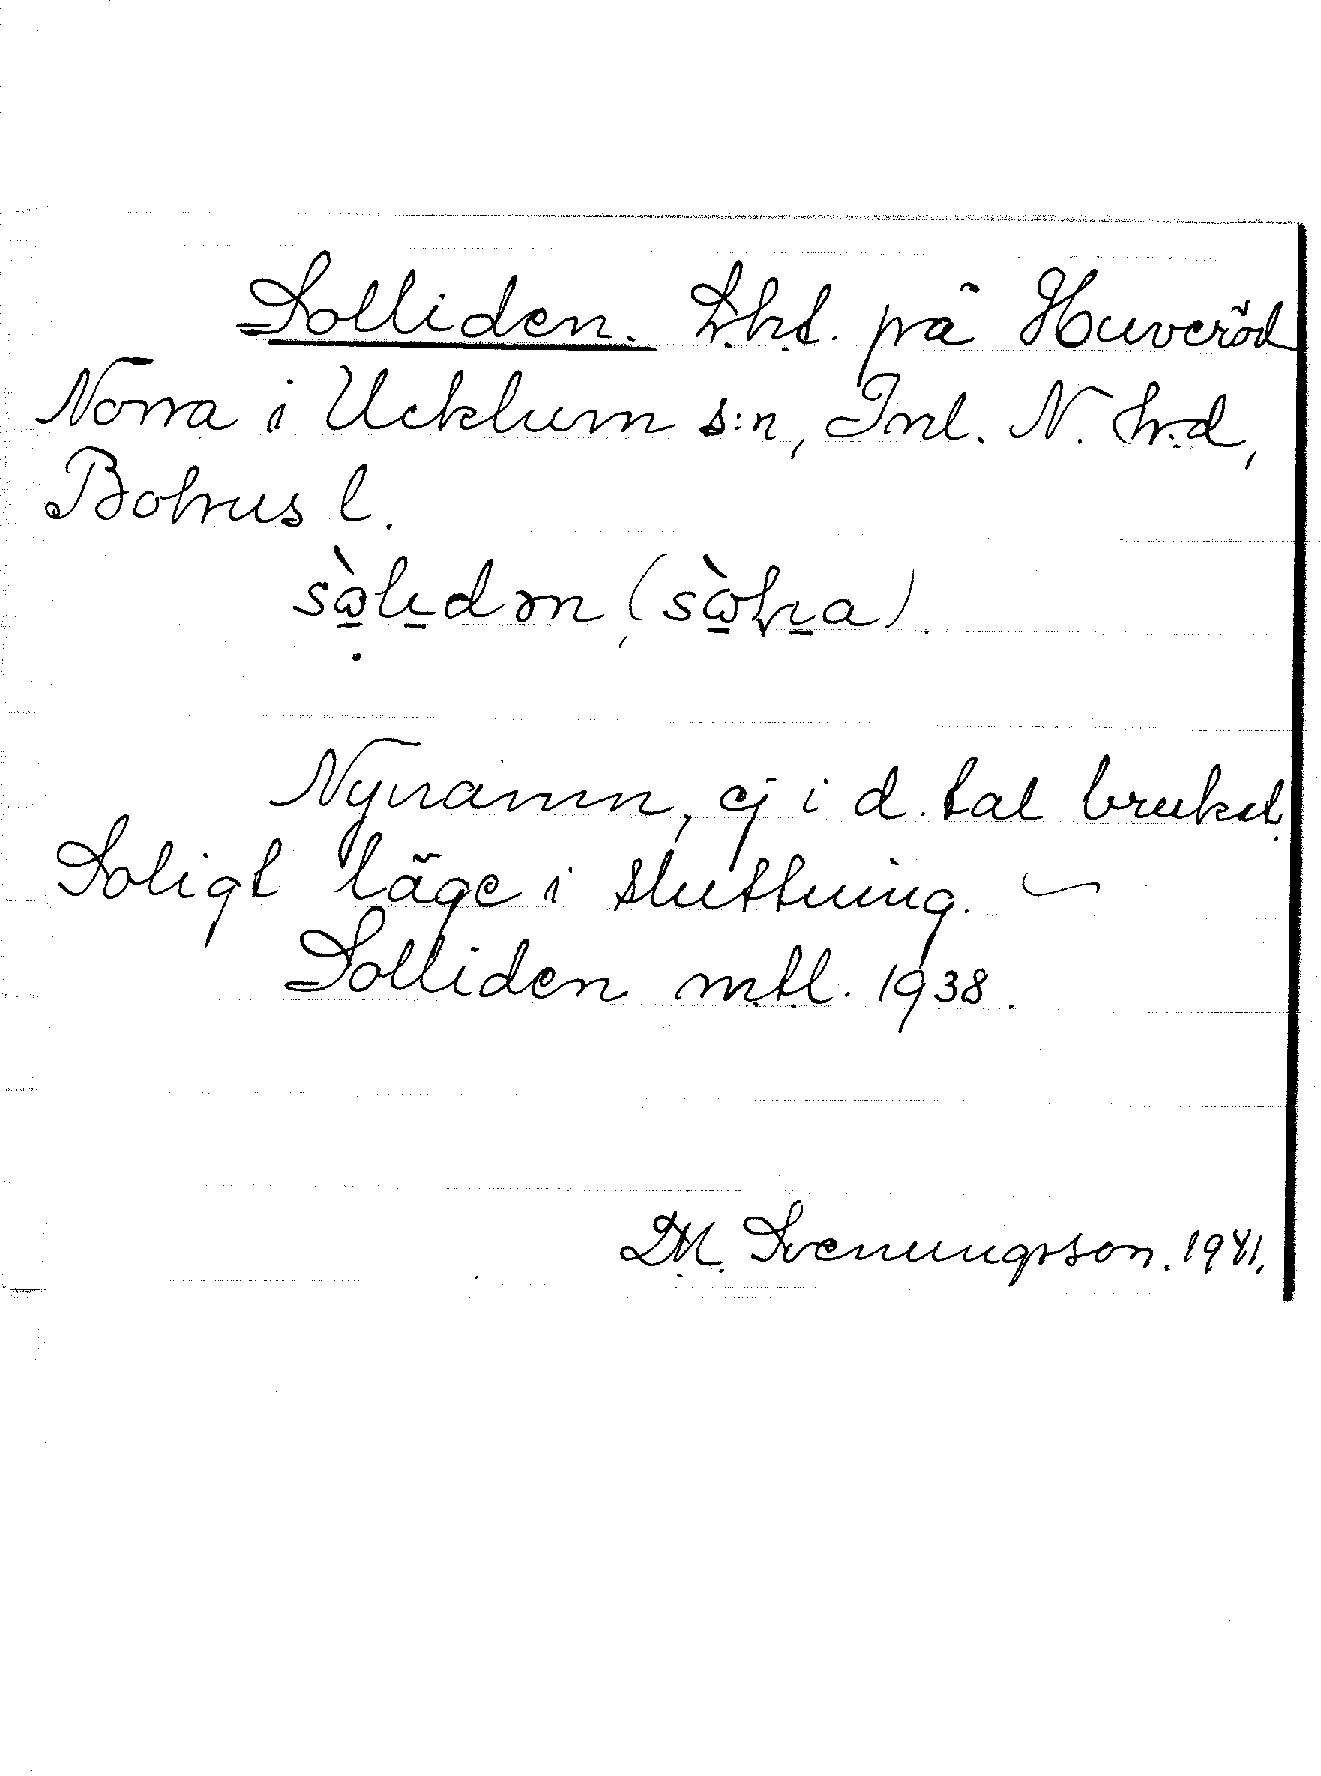 Solliden. Lht. på Huveröd
Norra i Ucklum s:n, Inl. N. hd,
Bohus l.
Nynamn, ej i d. tal brukat.
Soligt läge i sluttning. –
Solliden mtl. 1938.
D.M. Svenungsson. 1941.